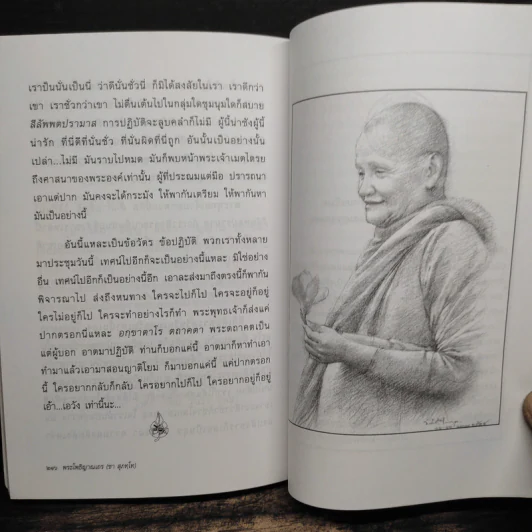 เราปืนนั่นเป็นนี่ ว่าดีนั่นชั่วนี่ ก็มิได้สงสัยในเรา เราดีกว่า
เขา เราชั่วกว่าเขา ไม่ตื่นเต้นไปในกลุ่มใดชุมนุมใดก็สบาย
สีลัพพตปรามาส การปฏิบัติจะลูบคลำก็ไม่มี ผู้นี้น่าชังผู้นี้
น่ารัก ที่นี่ดีที่นั่นชั่ว ที่นั่นผิดที่นี่ถูก อันนั้นเป็นอย่างนั้น
เปล่า...ไม่มี มันราบไปหมด มันก็พบหน้าพระเจ้าเมตไตรย
ถึงศาสนาของพระองค์เท่านั้น ผู้ที่ประณมแต่มือ ปรารถนา
เอาแต่ปาก มันคงจะได้กระมัง ให้พากันเตรียม ให้พากันหา
มันเป็นอย่างนี้
อันนี้แหละเป็นข้อวัตร ข้อปฏิบัติ พวกเราทั้งหลาย
มาประชุมวันนี้ เทศน์ไปอีกก็จะเป็นอย่างนี้แหละ มิใช่อย่าง
อื่น เทศน์ไปอีกก็เป็นอย่างนี้อีก เอาละส่งมาถึงตรงนี้ก็พากัน
พิจารณาไป ส่งถึงหนทาง ใครจะไปก็ไป ใครจะอยู่ก็อยู่
ใครไม่อยู่ก็ไป ใครจะทำอย่างไรก็ทำ พระพุทธเจ้าก็ส่งแค่
ปากตรอกนี่แหละ อกฺขาตาโร ตถาคตา พระตถาคตเป็น
แต่ผู้บอก อาตมาปฏิบัติ ท่านก็บอกแค่นี้ อาตมาก็หาทำเอา
ทำมาแล้วเอามาสอนญาติโยม ก็มาบอกแค่นี้ แค่ปากตรอก
นี้ ใครอยากกลับก็กลับ ใครอยากไปก็ไป ใครอยากอยู่ก็อยู่
เอ้า...เอวัง เท่านี้นะ...
พระโพธิญาณเถร (ชา สุภทฺโท)